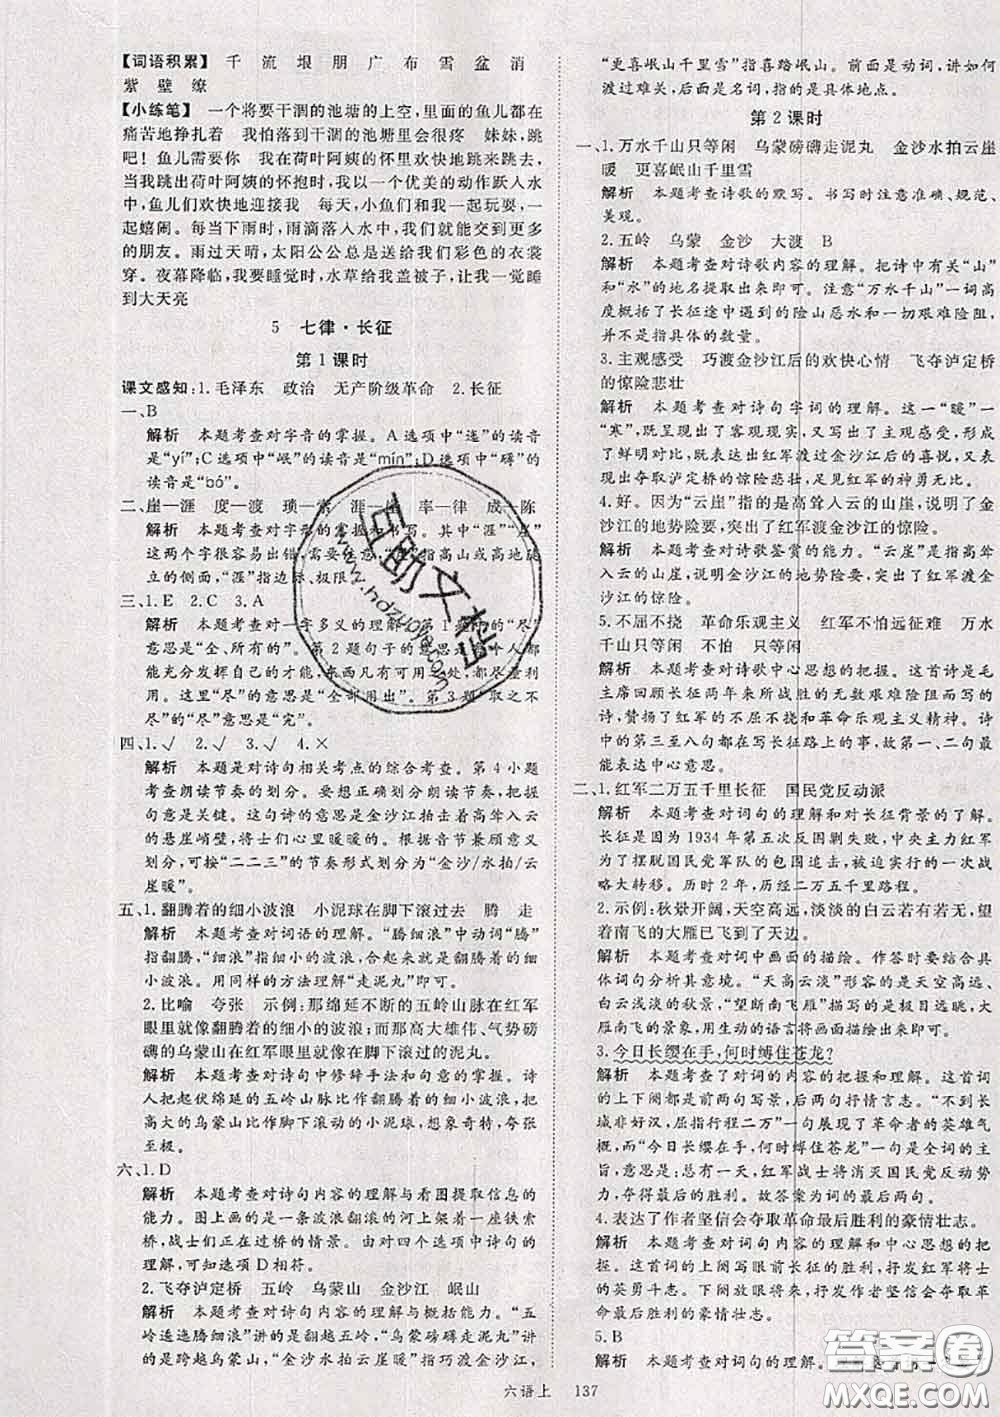 【词语积累】 千 流 垠 朋 广 布 雪 盆 消
紫 壁 缭
【小练笔】 一个将要干涸的池塘的上空,里面的鱼儿都在
痛苦地挣扎着 我怕落到干涸的池塘会很疼 妹妹,跳
吧！鱼儿需要你 我在荷叶阿姨的怀里欢快地跳来跳去,
当我跳出荷叶阿姨的怀抱时,我以一个优美的动作跃入水
中,鱼儿们欢快地迎接我 每天,小鱼们和我一起玩耍,一
起嬉闹。每当下雨时,雨滴落入水中,我就能交到更多
的朋友。雨过天晴,太阳公公总是送给我们彩色的衣裳
穿。夜幕降临,我要睡觉时,水草给我盖被子,让我一觉睡
到大天亮
5 七律·长征
第1课时
课文感知:1.毛泽东 政治 无产阶级革命 2.长征
一、B
解析 本题考查对字音的掌握。A选项中“逶”的读音
是“yí”;C选项中“岷”的读音是“mín”;D选项中“礴”的
读音是“bó”。
二、崖—涯 度—渡 琐—索 涯—崖 率—律 成—陈
解析 本题考查对字形的掌握和书写。其中“涯”“崖”
这两个字很容易出错,需要注意,“崖”指高山或高地陡
立的侧面,“涯”指水边、极限。
三、1.E 2.C 3.A
解析 本题考查对一字多义的理解。第1题中的“尽”
意思是“全、所有的”。第2题句子的意思是每个人都
能充分发挥自己的才能,东西凡有可用之处,都能利用
起来。这里“尽”的意思是“全部用出”。第3题“取之不
尽”的“尽”意思是“完”。
四、1.√ 2.√ 3.√ 4.×
解析 本题是对诗句相关考点的综合考查。第4小题
考查朗读节奏的划分。考查学生划分朗读节奏,要先
理解诗意。这句诗的意思是金沙江两岸高耸入云的
悬崖峭壁,将士们心里暖暖的。根据节奏兼顾意义
划分,可按“二二三”的节奏形式划分为“金沙/水拍/云
崖暖”。
五、1.翻腾着的细小波浪 小泥球在脚下滚过去 腾 走
解析 本题考查对词语的理解。“腾细浪”中动词“腾”
指翻腾,“细浪”指细小的波浪,合起来指翻腾着的细小
波浪。用同样的方法理解“走泥丸”即可。
2.比喻 夸张 示例:那绵延不断的五岭山脉在红军
眼里就像翻腾着的细小的波浪;而那高大雄伟、气势磅
礴的乌蒙山在红军眼里就像在脚下滚过的泥丸。
解析 本题考查对诗句中修辞手法和句意的掌握。诗
人把起伏绵延的五岭山脉比作翻腾着的细小波浪,把
高大的乌蒙山比作脚下滚动的小泥球,想象奇特,夸张
至极。
六、1.D
解析 本题考查对诗句内容的理解与看图提取信息的
能力。图上画的是一条波浪翻滚的河上横着一座铁索
桥,战士们过桥的情景。由对四个选项中诗句的理解,
可知选项D相符。
2.飞夺泸定桥 五岭 乌蒙山 金沙江 岷山
解析 本题考查对诗句内容的理解与概括能力。“五
岭逶迤腾细浪”讲的是翻越五岭,“乌蒙磅礴走泥丸”讲
的是跨越乌蒙山,“金沙水拍云崖暖”指巧渡金沙江,
“更喜岷山千里雪”指喜踏岷山。前面由动词,讲如何
渡过难关,后面是名词,指的是具体地点。
第2课时
一、1.万水千山只等闲 乌蒙磅礴走泥丸 金沙水拍云崖
暖 更喜岷山千里雪
解析 本题考查诗歌的默写。书写时注意准确、规范、
美观。
2.五岭 乌蒙 金沙 大渡 B
解析 本题考查对诗歌内容的理解。把诗中有关“山”
和“水”的地名提取出来即可。注意“万水千山”一词高
度概括了长征途中遇到的险山恶水和一切艰难险阻,
并不是指具体的数量。
3.主观感受 巧渡金沙江后的欢快心情 飞夺泸定桥
的惊险悲壮
解析 本题考查对诗句字词的理解。这一“暖”一
“寒”,既表现了两次截然不同的战斗经历,又形成
了鲜明对比,既表达出红军渡过金沙江后的喜悦,又表
现出夺取泸定桥的惊险悲壮,更写出了红军的神勇无比。
4.好。因为“云崖”指的是高耸入云的山崖,写出了金
沙江的地势险要,突出了红军渡金沙江的惊险。
解析 本题考查对诗歌鉴赏的能力。“云崖”是指高耸
入云的山崖,写出了金沙江的地势险要,突出了红军渡
金沙江的惊险。
5.不屈不挠 革命乐观主义 红军不怕远征难 万水
千山只等闲 不怕 只等闲
解析 本题考查对诗歌中心思想的把握。这首诗是毛
主席回顾长征两年来所战胜的无数艰难险阻而写的
诗,赞扬了红军的不屈不挠和革命乐观主义精神。诗
中的第三至八句都在写长征路上的事,故第一、二句最
能表达中心意思。
二、1.红军二万五千里长征 国民党反动派
解析 本题考查对词句的理解和对长征背景的了解。
长征是因为1934年第五次反围剿失败,中央主力红军
为了摆脱国民党军队的包围追击,被迫实行的一次战
略大转移。历时2年,历经二万五千里路程。
2.示例:秋景开阔,天空高远,淡淡的白云若有若无,望
着南飞的大雁已飞到了天边。
解析 本题考查对词中画面的描绘。作答时要结合具
体词句分析其意境。“天高云淡”形容的是天空高远、
白云浅淡的秋景,“望断南飞雁”描写的是极目远眺,大
雁南飞的景象,用生动的语言将画面描绘出来即可。
3.今日长缨在手,何时缚住苍龙?
解析 本题考查了对词的内容的把握和理解。这首词
的上下阕都是前两句写景,后两句抒情言志。“不到长
城非好汉,屈指行程二万”一句发出了革命者的英雄气
概,而“今日长缨在手,何时缚住苍龙”一句是全词的主
旨,意思是:总有一天,红军战士将消灭国民党反动势
力,夺得最后的胜利。故答案为词的最后两句。
4.表达了作者坚信会夺取革命最后胜利的豪情壮志。
解析 本题考查对词句内容和中心思想的把握和理
解。这首词的上阕写景,形象地表现出长征时红军将士
的英勇斗志。下阕放眼将来,表达作者坚信会夺取革命
最后胜利的豪情壮志。
5.B
解析 本题考查对词句的理解。
六语上 137
互助文档
www.hdzuoye.com
答案圈
MXQE.COM